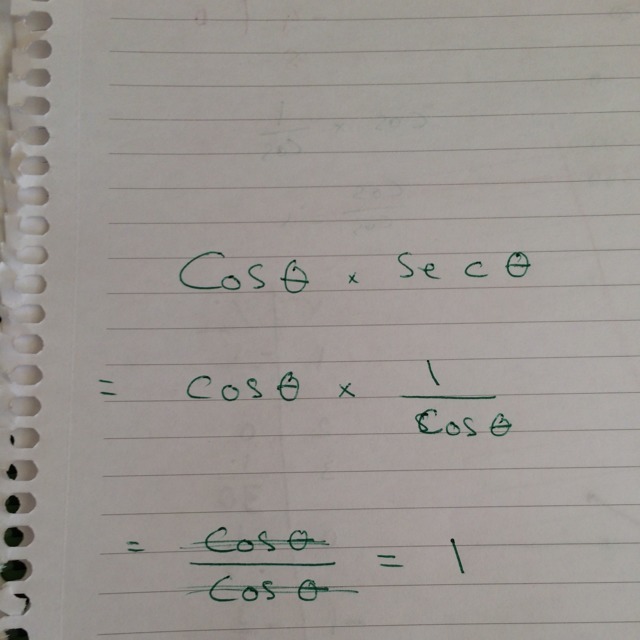 Cosθ × Secθ
= cosθ × 1/Cosθ
= Cosθ/Cosθ = 1